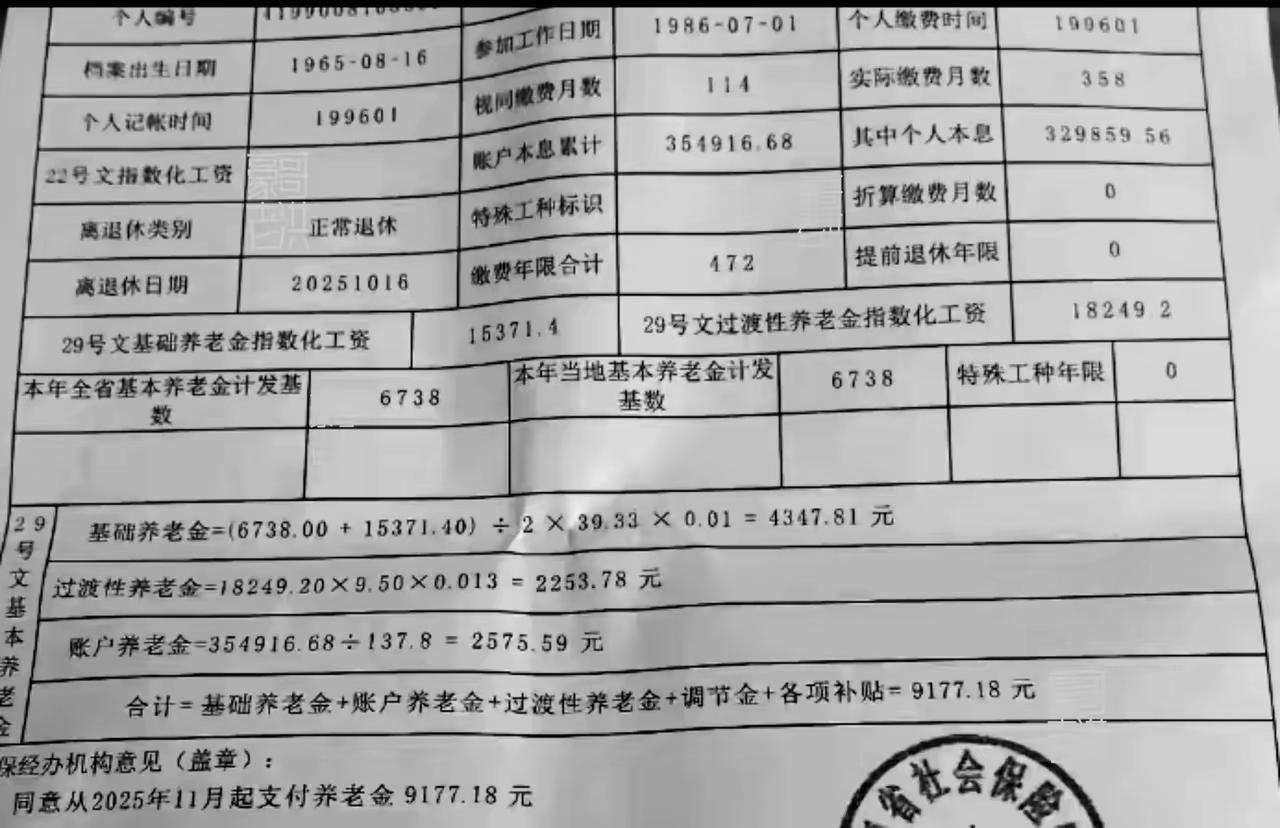 个人编号
参加工作日期 1986-07-01 个人缴费时间 199601
档案出生日期 1965-08-16 视同缴费月数 114 实际缴费月数 358
个人记帐时间 199601 账户本息累计 354916.68 其中个人本息 329859.56
22号文指数化工资 特殊工种标识 折算缴费月数 0
离退休类别 正常退休 缴费年限合计 472 提前退休年限 0
离退休日期 20251016
29号文基础养老金指数化工资 15371.4 29号文过渡性养老金指数化工资 18249.2
本年全省基本养老金计发基数 6738 本年当地基本养老金计发基数 6738 特殊工种年限 0
29号文基本养老金
基础养老金=(6738.00 + 15371.40) ÷ 2 × 39.33 × 0.01 = 4347.81 元
过渡性养老金=18249.20×9.50×0.013 = 2253.78 元
账户养老金=354916.68÷137.8 = 2575.59 元
合计= 基础养老金+账户养老金+过渡性养老金+调节金+各项补贴= 9177.18 元
保经办机构意见（盖章）：
同意从2025年11月起支付养老金 9177.18 元
省社会保险